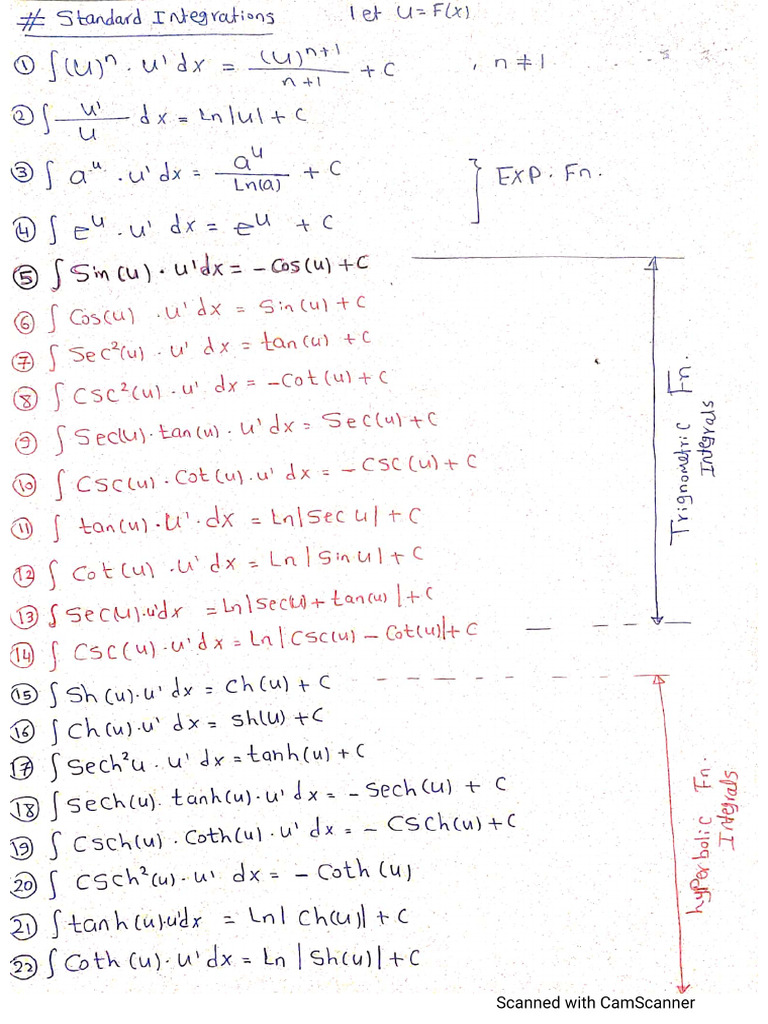 # Standard Integrations let u = F(x)
① ∫(u)ⁿ · u' dx = (u)ⁿ⁺¹ / n+1 + C , n ≠ 1
② ∫ u' / u dx = Ln|u| + C
③ ∫ aᵘ · u' dx = aᵘ / Ln(a) + C } EXP. Fn.
④ ∫ eᵘ · u' dx = eᵘ + C
⑤ ∫ Sin(u) · u' dx = -Cos(u) + C
⑥ ∫ Cos(u) · u' dx = Sin(u) + C
⑦ ∫ Sec²(u) · u' dx = tan(u) + C
⑧ ∫ CSC²(u) · u' dx = -Cot(u) + C
⑨ ∫ Sec(u) · tan(u) · u' dx = Sec(u) + C
⑩ ∫ CSC(u) · Cot(u) · u' dx = -CSC(u) + C
⑪ ∫ tan(u) · u' · dx = Ln|Sec u| + C
⑫ ∫ Cot(u) · u' dx = Ln|Sin u| + C
⑬ ∫ Sec(u) · u' dx = Ln|Sec(u) + tan(u)| + C
⑭ ∫ CSC(u) · u' dx = Ln|CSC(u) - Cot(u)| + C
Trignometric Fn.
Integrals
⑮ ∫ Sh(u) · u' dx = Ch(u) + C
⑯ ∫ Ch(u) · u' dx = Sh(u) + C
⑰ ∫ Sech²u · u' dx = tanh(u) + C
⑱ ∫ Sech(u) · tanh(u) · u' dx = -Sech(u) + C
⑲ ∫ CSch(u) · Coth(u) · u' dx = -CSCh(u) + C
⑳ ∫ CSCh²(u) · u' dx = -Coth(u)
㉑ ∫ tanh(u) · u' dx = Ln|Ch(u)| + C
㉒ ∫ Coth(u) · u' dx = Ln|Sh(u)| + C
hyPerbolic Fn.
Integrals
Scanned with CamScanner